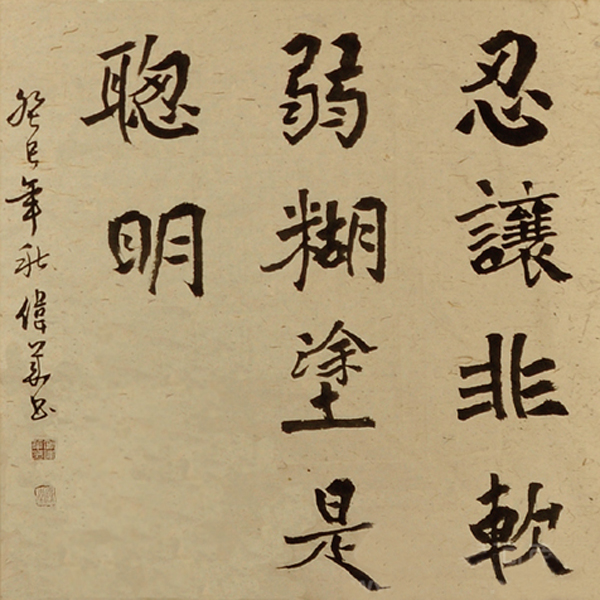 忍讓非軟
弱糊塗是
聰明
癸巳年秋偉華书